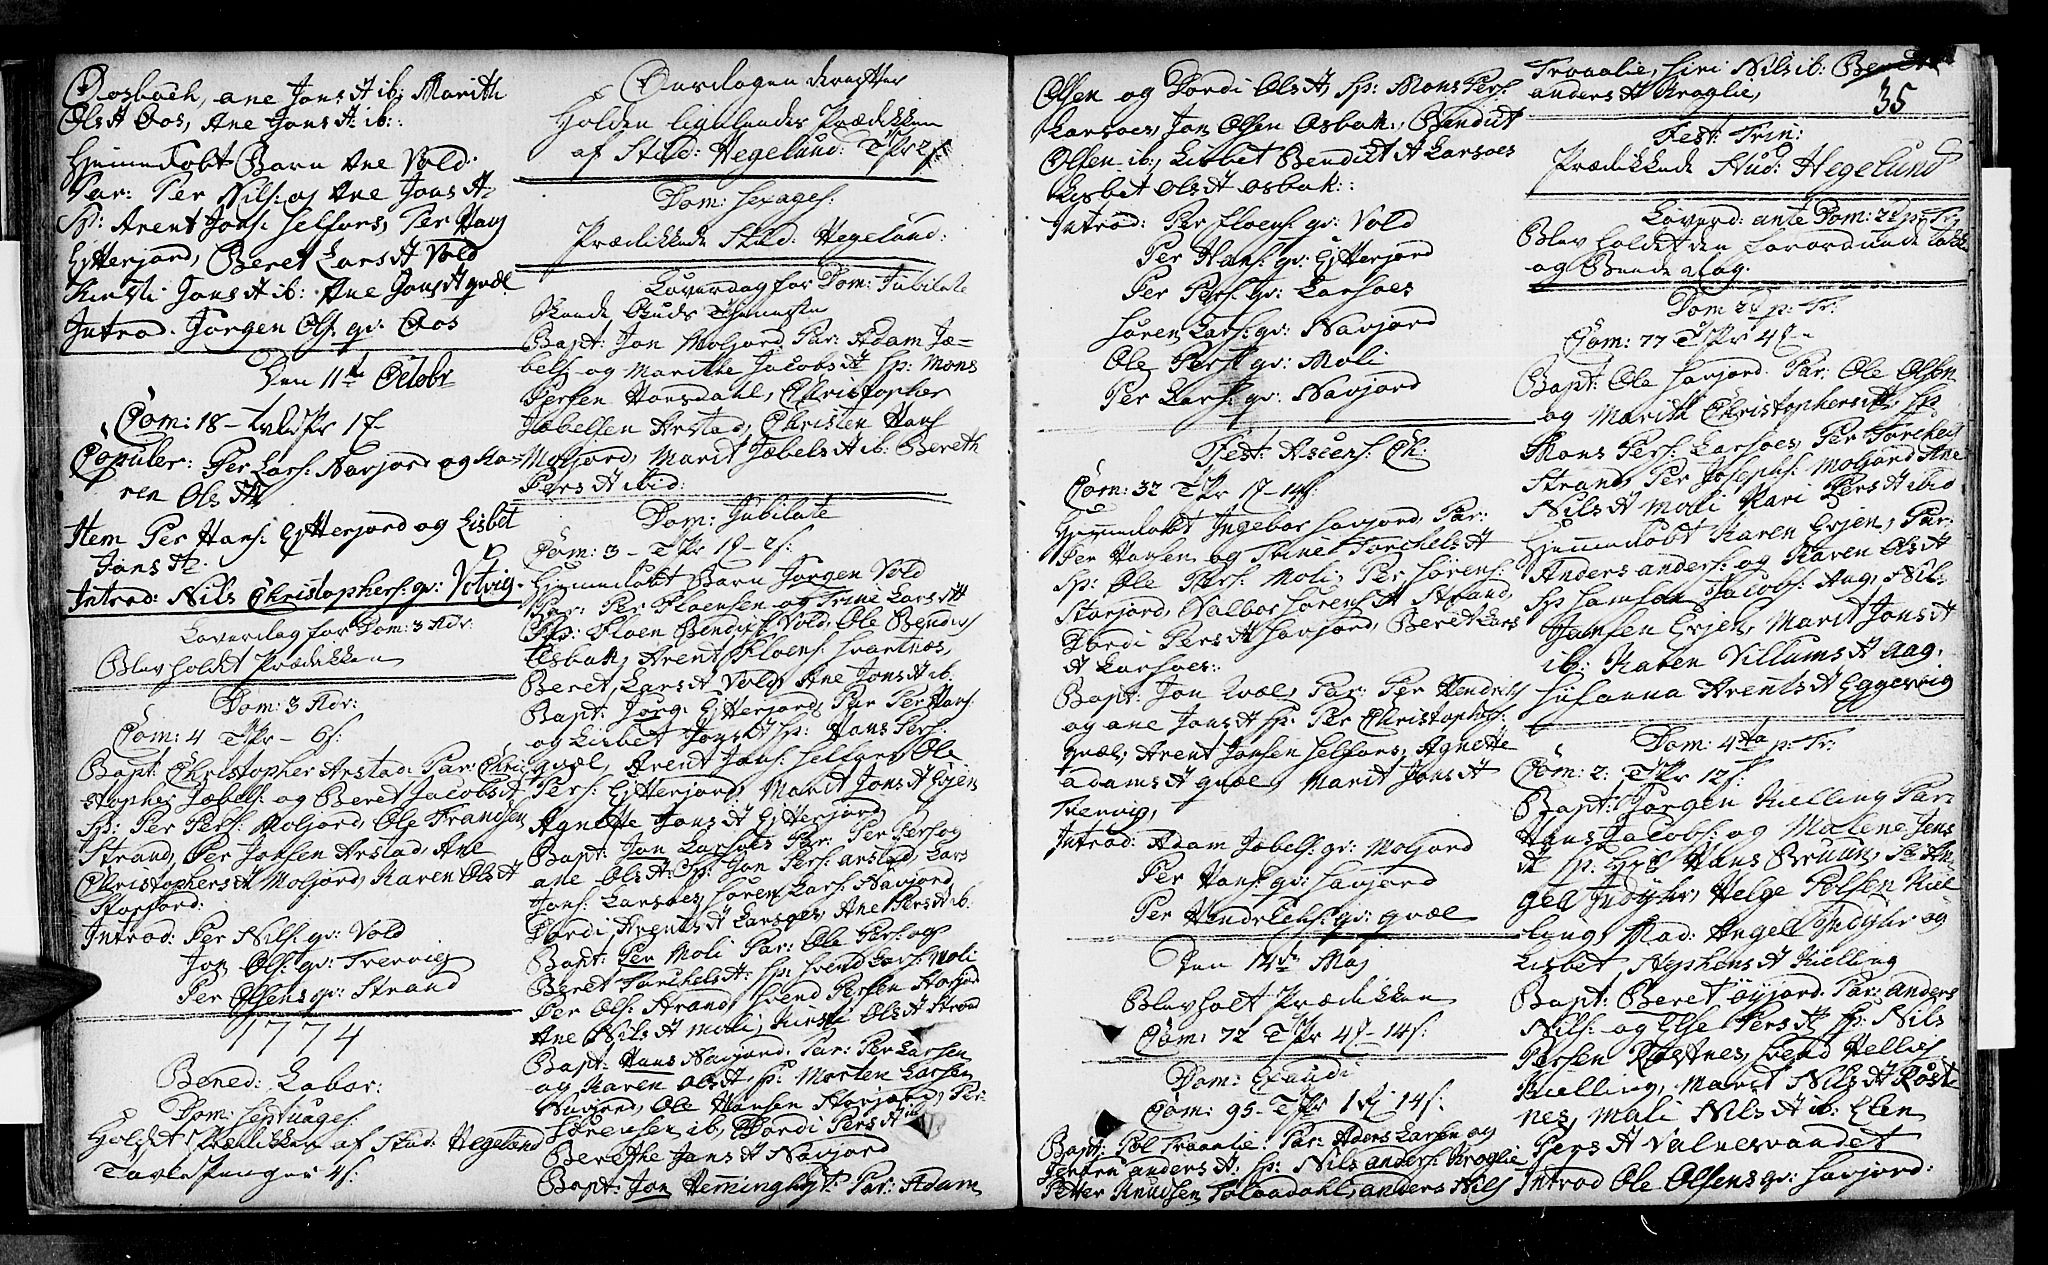 Oosbach, ane Jons D ib: Marith
Ols D Oos, Ane Jons D: ib:
Hjemmedøbt Barn Ane Vold.
Par: Per Nils: og Ane Jons D
Sp: Arent Jons: Selfors, Per Hans
Gytterjord, Beret Lars D Vold
Kirsti Jons D ib: Ane Jons D qvæl
Introd. Jørgen Ols: qv: Oos
Den 11te Octobr
Com: 18
Copuler: Per Lars: Navjord og Ka-
ren Ols D
Item Per Hans: Gytterjord og Lisbet
Jons D.
Introd: Nils Christophers: qv: Votvig.
Løverdag for Dom: 3 Adv:
Blev holdet Prædikken
Dom: 3 Adv:
Com: 4 TPr - 6s:
Bapt: Christopher Arstad. Par: Chri-
stopher Jæbels: og Beret Jacobs D
Sp: Per Pers: Moljord, Ole Frandsen
Strand, Per Jonsen Arstad, Ane
Christophers D Moljord, Karen Ols D
Storjord:
Introd: Per Nils: qv: Vold
Jon Ols: qv: Trervig
Per Olsens qv: Strand
1774
Bened: Labor:
Dom: Septuages:
Holdet Prædikken af Stud: Hegelund
Tavle Penger 4s:
Onsdagen derefter
Holden ligeledes Prædikken
af Stud: Hegelund: TPr 2s
Dom: Sexages:
Prædikkede Stud: Hegelund:
Løverdag for Dom: Jubilate
Skeede Guds Tjenneste
Bapt: Jon Moljord, Par: Adam Jæ-
bels: og Marithe Jacobs D Sp: Mons
Persen Hansdahl, Christopher
Jæbelsen Arstad, Christen Hans
Moljord, Marit Jæbels D ib: Bereth
Pers D ibid:
Dom: Jubilate
Com: 3 - TPr
Hjemmedøbt Barn Jørgen Vold
Par: Per Floensen og Trine Lars D
Sp: Floen Bendics: Vold, Ole Bendics
Osbak, Arent Floens: Svartnæs,
Beret Lars D Vold, Ane Jons D ib:
Bapt: Jørg: Gytterjord, Par Per Hans:
og Lisbet Jons D Sp: Hans Pers:
qvæl, Arent Jons: Selfors Ole
Pers: Gytterjord, Marit Jons D Evjen
Agnethe Jons D Gytterjord
Bapt: Jon Larsoes Par: Per Pers og
ane Ols D: Sp: Jon Pers: arstad, Lars
Jons: Larsoes, Søren Lars: Navjord
Dordi Arents D Larsoes, Ane Pers D ib:
Bapt: Per Moli Par: Ole Pers: og
Beret Torchels D: Sp: Svend Lars: Moli
Per Ols: Strand, Svend Persen Storjord
Ane Nils D Moli, Kirsti Ols D Strand
Bapt: Hans Navjord. Par: Per Larsen
og Karen Ols D Sp: Morten Larsen
Navjord, Ole Hansen Storjord, Per
Sørensen ib: Dordi Pers D ib
Berethe Jons D Navjord
Bapt: Jon Heminghyt: Par: Adam
Olsen og Dordi Ols D Sp: Mons Pers:
Larsoes, Jon Olsen Osbak, Bendict
Olsen ib: Lisbet Bendict D Larsoes
Lisbet Ols D osbak:
Introd: Per Floens: qv: Vold
Per Hans: qv: Gytterjord
Per Pers: qv: Larsoes
Søren Lars: qv: Navjord
Ole Pers: qv: Moli
Per Lars: qv: Navjord
Fest: Ascens: Ch:
Com: 32 TPr
Hjemmedøbt Ingebor Savjord, Par:
Per Hansen og Trine Torchels D
Sp: Ole Pers: Moli, Per Sørens:
Storjord, Valbor Sørens D Strand,
Dordi Pers D Savjord, Beret Lars
D Larsoes:
Bapt: Jon Qvæl, Par: Per Hendrichs
og ane Jons D Sp: Per Christophers:
qvæl, Arent Jonsen Selfors, Agnethe
Adams D qvæl Marit Jons D
Trervig,
Introd: Adam Jæbels: qv: Moljord
Per Hans: qv: Savjord
Per Hendrichs: qv: qvæl
Den 14de Maj
Blev holt Prædikken
Com: 72 TPr
Dom: Exaudi
Com: 95 - TPr
Bapt: Pol Traaalie Par: Anders Larsen og
anders D: Sp: Nils anders: Kroglie
Petter Knudsen anders Nils
Traaalie, Siri Nils ib:
anders D Kroglie,
35
Fest: Trin:
Prædikkede Stud: Hegelund
Løverd: ante Dom: 2d p: Tr
Blev holdet den
og Beede dag.
Dom 2d p: Tr:
Com: 77 TPr
Bapt: Ole Savjord. Par: Ole Olsen
og Marith Christophers D Sp
Mons Pers: Larsoes, Per Torchels
Strand, Per Josephs: Moljord Ane
Nils D Moli Kari Pers D ibid
Hjemmedøbt Karen Evjen, Par:
Anders anders: og Karen Ols D
Sp Samson Jacobs: Aag, Nils
Jansen Evjen, Marit Jons D
ib: Karen Villums D Aag,
Susanna Arents D Eggesvig
Dom: 4ta p: Tr:
Com: 2: TPr 12s:
Bapt: Jørgen Kielling Par:
Hans Jacobs: og Malene Jens
D Sp: Hr Hans Bruun,
Helge Polsen Kiel
ling, Mad: Angel og
Lisbet Stephens D Kielling
Bapt: Beret Øyjord. Par: anders
Nils: og Else Pers D Sp: Nils
Persen Røstnes, Svend
Kielling, Marit Nils D Røst
nes, Mali Nils D ib: Elen
Pers D Valnesvandet
Introd Ole Olsens qv: Savjord: